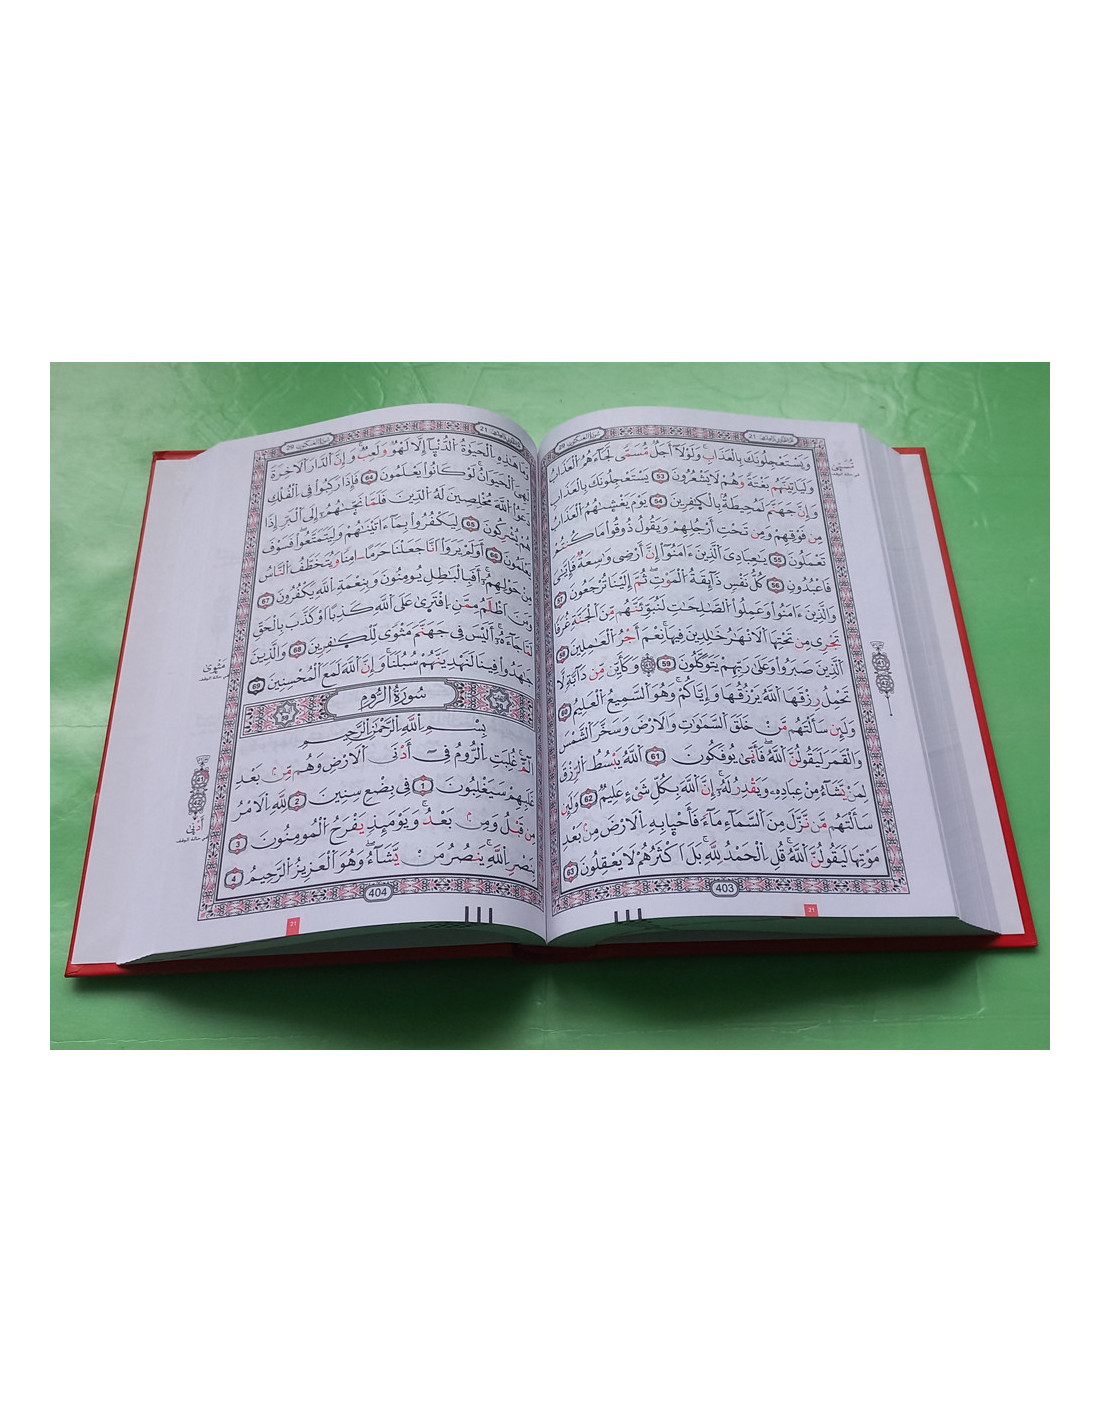 سُورَةُ الْعَنكَبُوتِ 29
21
وَيَسْتَعْجِلُونَكَ بِالْعَذَابِ وَلَوْلَآ أَجَلٌ مُّسَمًّى لَّجَآءَهُمُ الْعَذَابُ
وَلَيَاتِيَنَّهُم بَغْتَةً وَهُمْ لَا يَشْعُرُونَ 53 يَسْتَعْجِلُونَكَ بِالْعَذَابِ
وَإِنَّ جَهَنَّمَ لَمُحِيطَةٌ بِالْكَٰفِرِينَ 54 يَوْمَ يَغْشَىٰهُمُ الْعَذَابُ
مِن فَوْقِهِمْ وَمِن تَحْتِ أَرْجُلِهِمْ وَيَقُولُ ذُوقُوا مَا كُنتُمْ
تَعْمَلُونَ 55 يَٰعِبَادِيَ الَّذِينَ ءَامَنُوا إِنَّ أَرْضِي وَاسِعَةٌ فَإِيَّٰيَ
فَاعْبُدُونِ 56 كُلُّ نَفْسٍ ذَآئِقَةُ الْمَوْتِ ثُمَّ إِلَيْنَا تُرْجَعُونَ 57
وَالَّذِينَ ءَامَنُوا وَعَمِلُوا الصَّٰلِحَٰتِ لَنُبَوِّئَنَّهُم مِّنَ الْجَنَّةِ غُرَفًا
تَجْرِي مِن تَحْتِهَا الَانْهَٰرُ خَٰلِدِينَ فِيهَا نِعْمَ أَجْرُ الْعَٰمِلِينَ 58
الَّذِينَ صَبَرُوا وَعَلَىٰ رَبِّهِمْ يَتَوَكَّلُونَ 59 وَكَأَيِّن مِّن دَآبَّةٍ لَّا
تَحْمِلُ رِزْقَهَا اللَّهُ يَرْزُقُهَا وَإِيَّاكُمْ وَهُوَ السَّمِيعُ الْعَلِيمُ 60
وَلَئِن سَأَلْتَهُم مَّنْ خَلَقَ السَّمَٰوَٰتِ وَالَارْضَ وَسَخَّرَ الشَّمْسَ
وَالْقَمَرَ لَيَقُولُنَّ اللَّهُ فَأَنَّىٰ يُوفَكُونَ 61 اللَّهُ يَبْسُطُ الرِّزْقَ
لِمَنْ يَّشَآءُ مِنْ عِبَادِهِ وَيَقْدِرُ لَهُ إِنَّ اللَّهَ بِكُلِّ شَيْءٍ عَلِيمٌ 62 وَلَئِن
سَأَلْتَهُم مَّن نَّزَّلَ مِنَ السَّمَآءِ مَآءً فَأَحْيَا بِهِ الَارْضَ مِنْ بَعْدِ
مَوْتِهَا لَيَقُولُنَّ اللَّهُ قُلِ الْحَمْدُ لِلَّهِ بَلْ أَكْثَرُهُمْ لَا يَعْقِلُونَ 63
403
21
مُسَمًّى
21
سُورَةُ الْعَنكَبُوتِ 29
وَمَا هَٰذِهِ الْحَيَوٰةُ الدُّنْيَآ إِلَّا لَهْوٌ وَلَعِبٌ وَإِنَّ الدَّارَ الَاخِرَةَ
لَهِيَ الْحَيَوَانُ لَوْ كَانُوا يَعْلَمُونَ 64 فَإِذَا رَكِبُوا فِي الْفُلْكِ
دَعَوُا اللَّهَ مُخْلِصِينَ لَهُ الدِّينَ فَلَمَّا نَجَّىٰهُمُ إِلَى الْبَرِّ إِذَا
هُمْ يُشْرِكُونَ 65 لِيَكْفُرُوا بِمَآ ءَاتَيْنَٰهُمْ وَلِيَتَمَتَّعُوا فَسَوْفَ
يَعْلَمُونَ 66 أَوَلَمْ يَرَوَا أَنَّا جَعَلْنَا حَرَمًا ـ امِنًا وَيُتَخَطَّفُ النَّاسُ
مِنْ حَوْلِهِمُ أَفَبِالْبَٰطِلِ يُومِنُونَ وَبِنِعْمَةِ اللَّهِ يَكْفُرُونَ 67
وَمَنَ اظْلَمُ مِمَّنِ افْتَرَىٰ عَلَى اللَّهِ كَذِبًا أَوْ كَذَّبَ بِالْحَقِّ
لَمَّا جَآءَهُ أَلَيْسَ فِي جَهَنَّمَ مَثْوًى لِّلْكَٰفِرِينَ 68 وَالَّذِينَ
جَٰهَدُوا فِينَا لَنَهْدِيَنَّهُمْ سُبُلَنَا وَإِنَّ اللَّهَ لَمَعَ الْمُحْسِنِينَ 69
سُورَةُ الرُّومِ
بِسْمِ اللَّهِ الرَّحْمَٰنِ الرَّحِيمِ
أَلَٓمِّٓ غُلِبَتِ الرُّومُ فِي أَدْنَى الَارْضِ وَهُم مِّنْ بَعْدِ
غَلَبِهِمْ سَيَغْلِبُونَ 1 فِي بِضْعِ سِنِينَ 2 لِلَّهِ الَامْرُ
مِن قَبْلُ وَمِنْ بَعْدُ وَيَوْمَئِذٍ يَفْرَحُ الْمُومِنُونَ 3
بِنَصْرِ اللَّهِ يَنصُرُ مَنْ يَّشَآءُ وَهُوَ الْعَزِيزُ الرَّحِيمُ 4
404
21
مَثْوًى
أَدْنَى